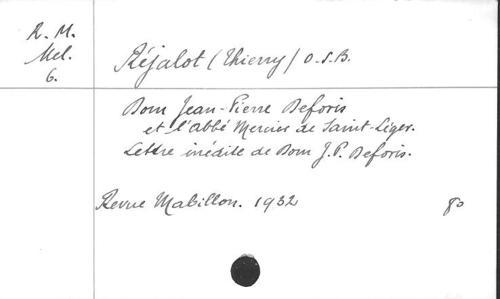 R. M.
Mel.
6.
Réjalot (Thierry) O.S.B.
Dom Jean-Pierre Deforis
et l'abbé Mercier de Saint-Léger.
Lettre inédite de Dom J.P. Deforis.
Revue Mabillon. 1932
80